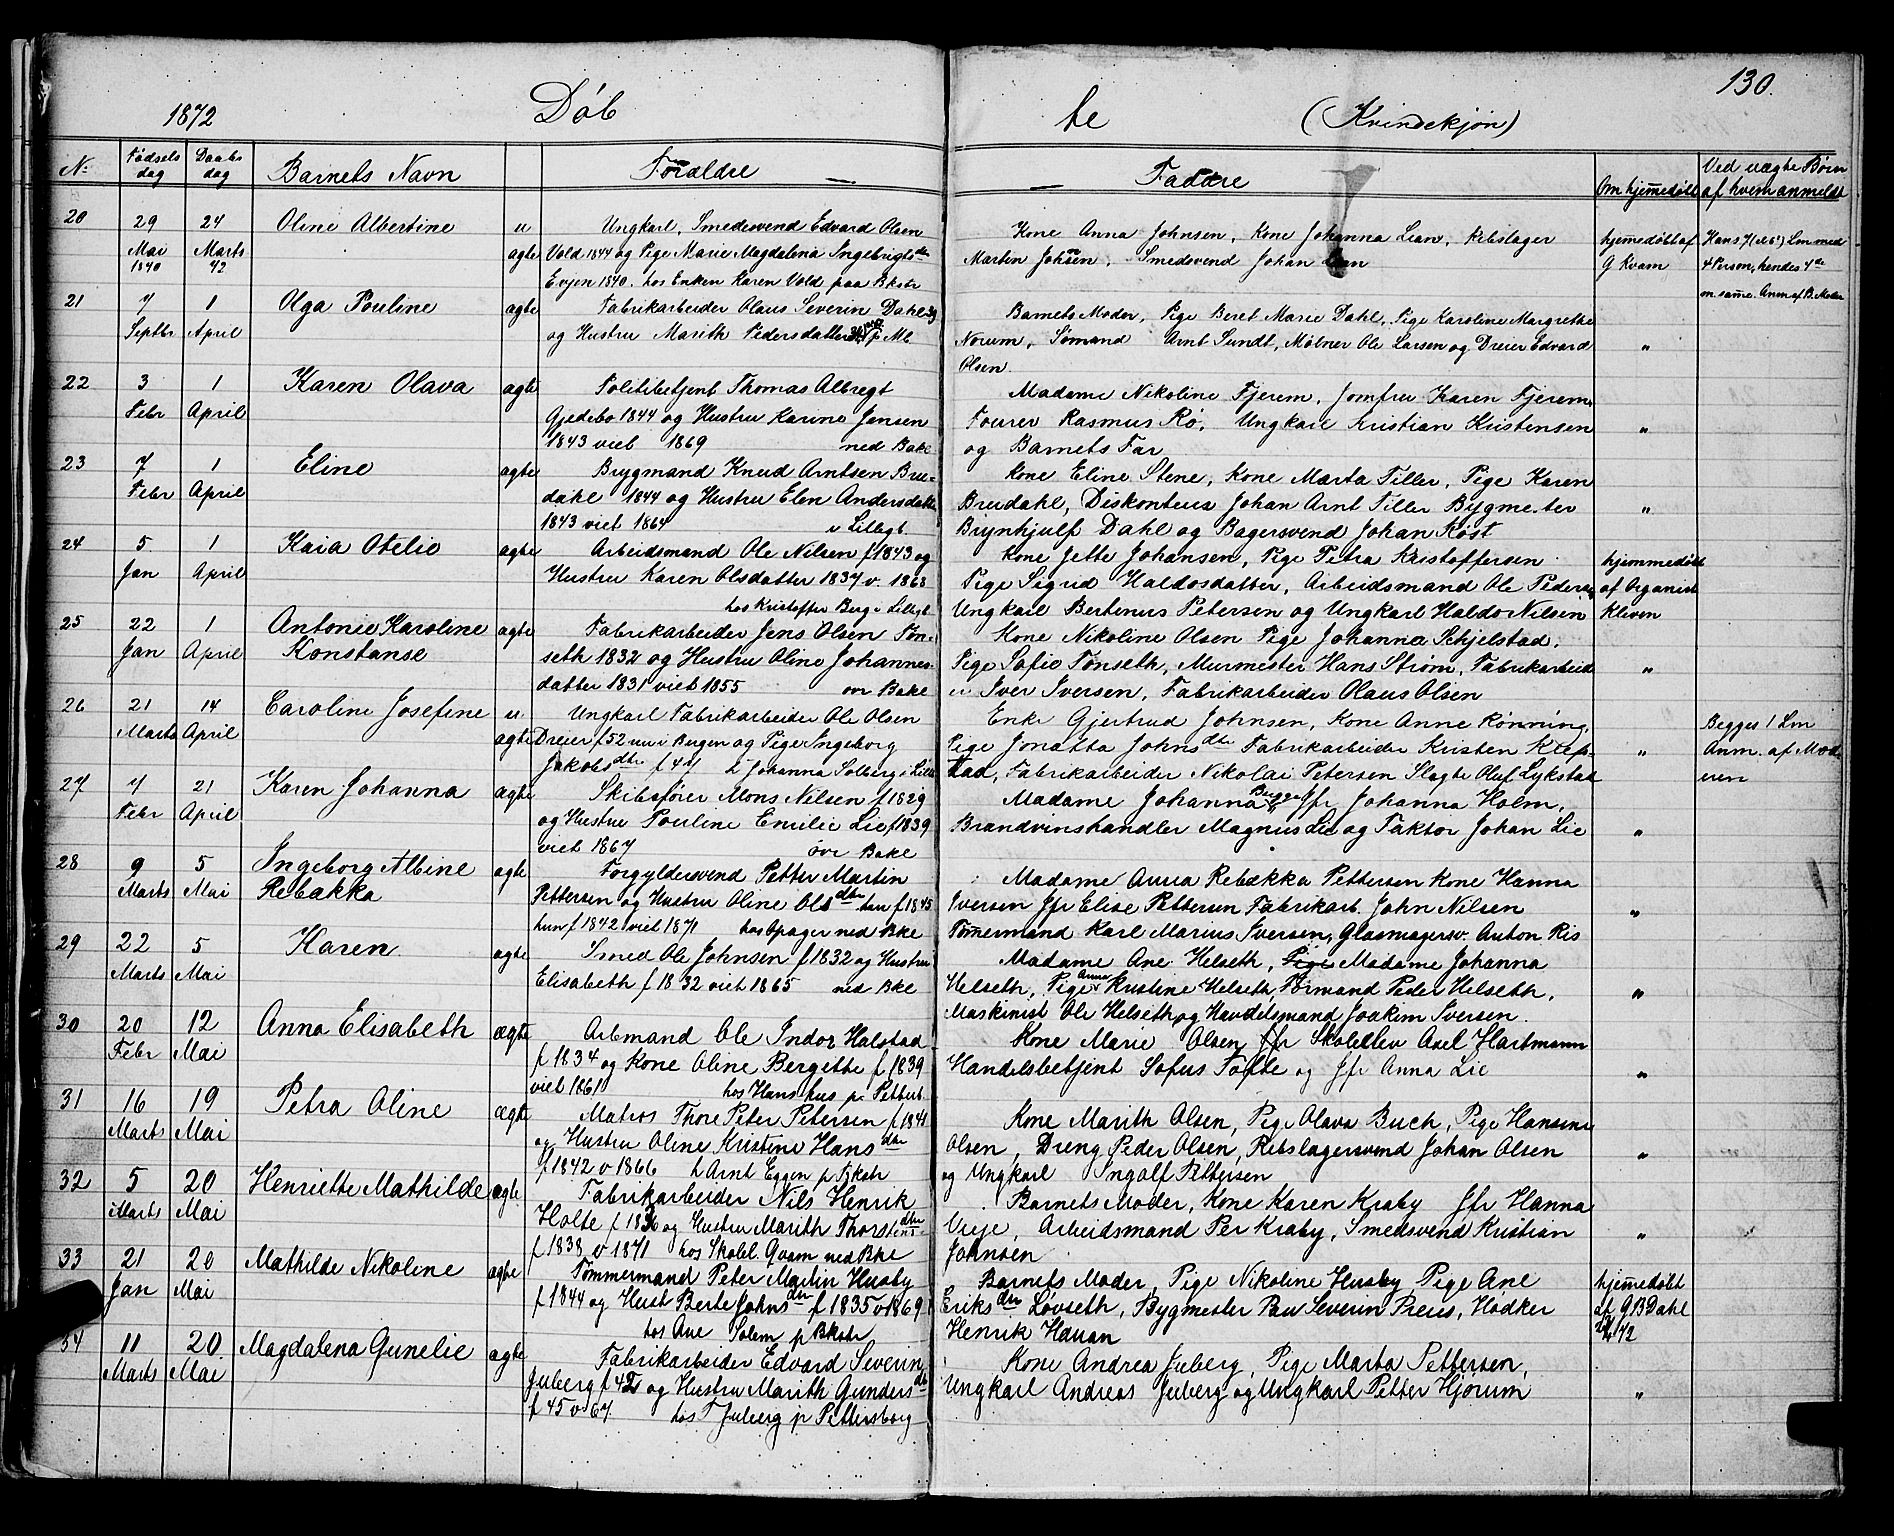 130.
1872 Døbte (Kvindekjøn)
No Fødsels dag Daabs dag Barnets Navn Forældre Faddre Om hjemedøbt Ved uægte Børn af hvem anmeldt
20 29 24 Oline Albertine u Ungkarl, Smedesvend Edvard Olsen Kone Anna Johnsen, Kone Johanna Lian, Rebslager hjemedøbt af
Mai Marts agte Vold 1844 og Pige Marie Magdalena Ingebrigtsdtr Marten Johnsen, Smedesvend Johan Lian G Kvam
1840 42 Evjen 1840. hos Enken Karen Vold paa Bkstr
21 7 1 Olga Pouline agte Fabrikarbeider Olaus Severin Dahl 39 Barnets Moder, Pige Beret Marie Dahl, Pige Karoline Margrethe
Septbr April og Hustru Marith Pedersdatter p Mb Norum, Sømand Arnt Sundt, Møbner Ole Larsen og Dreier Edvard "
Olsen.
22 3 1 Karen Olava agte Politibetjent Thomas Albregt Madame Nikoline Fjerem, Jomfru Karen Fjerem,
Febr April Gjedebo 1844 og Hustru Karine Jensen Fourer Rasmus Rø, Ungkarl Kristian Kristensen "
1843 viet 1869 ned Bake og Barnets Far
23 7 1 Eline agte Brygmand Knud Arntsen Breu- Kone Eline Stene, Kone Marta Tiller, Pige Karen
Febr April dahl 1844 og Hustru Elen Andersdatter Breudahl, Diskonteus Johan Arnt Tiller Bygmester "
1843 viet 1864 i Lillegt Brynhjulf Dahl og Bagersvend Johan Røst
24 5 1 Kaia Otelie agte Arbeidsmand Ole Nilsen f 1843 og Kone Jette Johansen, Pige Petra Kristoffersen hjemmedøbt
Jan April Hustru Karen Olsdatter 1837 v. 1868 Pige Sigrid Haldosdatter, Arbeidsmand Ole Pedersen af Organist
hos Kristoffer Berg i Lillegt Ungkarl Bertenus Petersen og Ungkarl Haldo Nilsen Kleven
25 22 1 Antonie Karoline agte Fabrikarbeider Jens Olsen Tøn- Kone Nikoline Olsen Pige Johanna Schjelstad,
Jan April Konstanse seth 1832 og Hustru Oline Johannes- Pige Sofie Tønseth, Murmester Hans Strøm, Fabrikarbeid "
datter 1831 viet 1855 ovr Bake er Iver Iversen, Fabrikarbeider Olaus Olsen
26 21 14 Caroline Josefine u Ungkarl Fabrikarbeider Ole Olsen Enke Gjertrud Johnsen, Kone Anne Rønning, Begges 1 Lm
Marts April agte Dreier f 52 nu i Bergen og Pige Ingeborg Pige Jonatta Johnsdtr Fabrikarbeider Kristen Klef- " Anm. af Mod
Jakobsdtr f 47 h Johanna Solberg i Lille stad, Fabrikarbeider Nikolai Petersen Slagter Oluf Lykstad eren
27 7 21 Karen Johanna agte Skibsfører Mons Nilsen f 1829 Madame Johanna Bugge Jfr Johanna Holm,
Febr April og Hustru Pouline Emilie Lie f 1839 Brandvinshandler Magnus Lie og Faktor Johan Lie "
viet 1867 øvr Bake
28 9 5 Ingeborg Albine agte Forgyldersvend Petter Martin Madame Anna Rebækka Pettersen Kone Hanna
Marts Mai Rebækka Pettersen og Hustru Oline Olsdtr han f 1845 Iversen Jfr Elise Pettersen Fabrikarb. John Nilsen "
hun f 1842 viet 1871 hos Opager ned Bke Tømermand Karl Marius Iversen, Glasmagersv. Anton Ris
29 22 5 Karen agte Smed Ole Johnsen f 1832 og Hustru Madame Ane Helseth, Pige Madame Johanna
Marts Mai Elisabeth f 1832 viet 1865 ned Bke Helseth, Pige Anna Kristine Helseth, Formand Peder Helseth, "
Maskinist Ole Helseth og Handelsmand Joakim Iversen.
30 20 12 Anna Elisabeth ægte Arbmand Ole Indor Halstad Kone Marie Olsen Jfr Skoleelev Axel Hartmann
Febr Mai f 1834 og Kone Oline Bergitte f 1839 Handelsbetjent Sofus Tofte og Jfr Anna Lie "
viet 1861 hos Hans hus pr Petterb
31 16 19 Petra Oline ægte Matros Thore Peter Petersen f 1841 Kone Marith Olsen, Pige Olava Buch, Pige Hansine
Marts Mai og Hustru Oline Kristine Hansdtr Olsen, Dreng Peder Olsen, Rebslagersvend Johan Olsen "
f 1842 v 1866 h Arnt Eggen p Bkstr og Ungkarl Ingolf Pettersen
32 5 20 Henriette Mathilde ægte Fabrikarbeider Nils Henrik Barnets Moder, Kone Karen Kraby Jfr Hanna
Marts Mai Holte f 1836 og Hustru Marith Thorstensdtr Veje, Arbeidsmand Per Kraby, Smedsvend Kristian "
f 1838 v 1871 hos Skolel. Qvam ned Bke Johnsen
33 21 20 Mathilde Nikoline agte Tømmermand Peter Martin Husby Barnets Moder, Pige Nikoline Husby Pige Ane hjemedøbt
Jan Mai f 1844 og Hust Berte Johnsdtr f 1835 v 1869 Eriksdtr Løvseth, Bygmester Pau Severin Preus, Hødker af GB Dahl
hos Ane Solem p Bkstr Henrik Hauan 72
34 11 20 Magdalena Gunelie agte Fabrikarbeider Edvard Severin Kone Andrea Juberg, Pige Marta Pettersen,
Marts Mai Juberg f 42 og Hustru Marith Gundersdtr Ungkarl Andreas Juberg og Ungkarl Petter Hjorum "
f 45 v 67 hos F Juberg pr Pettersborg